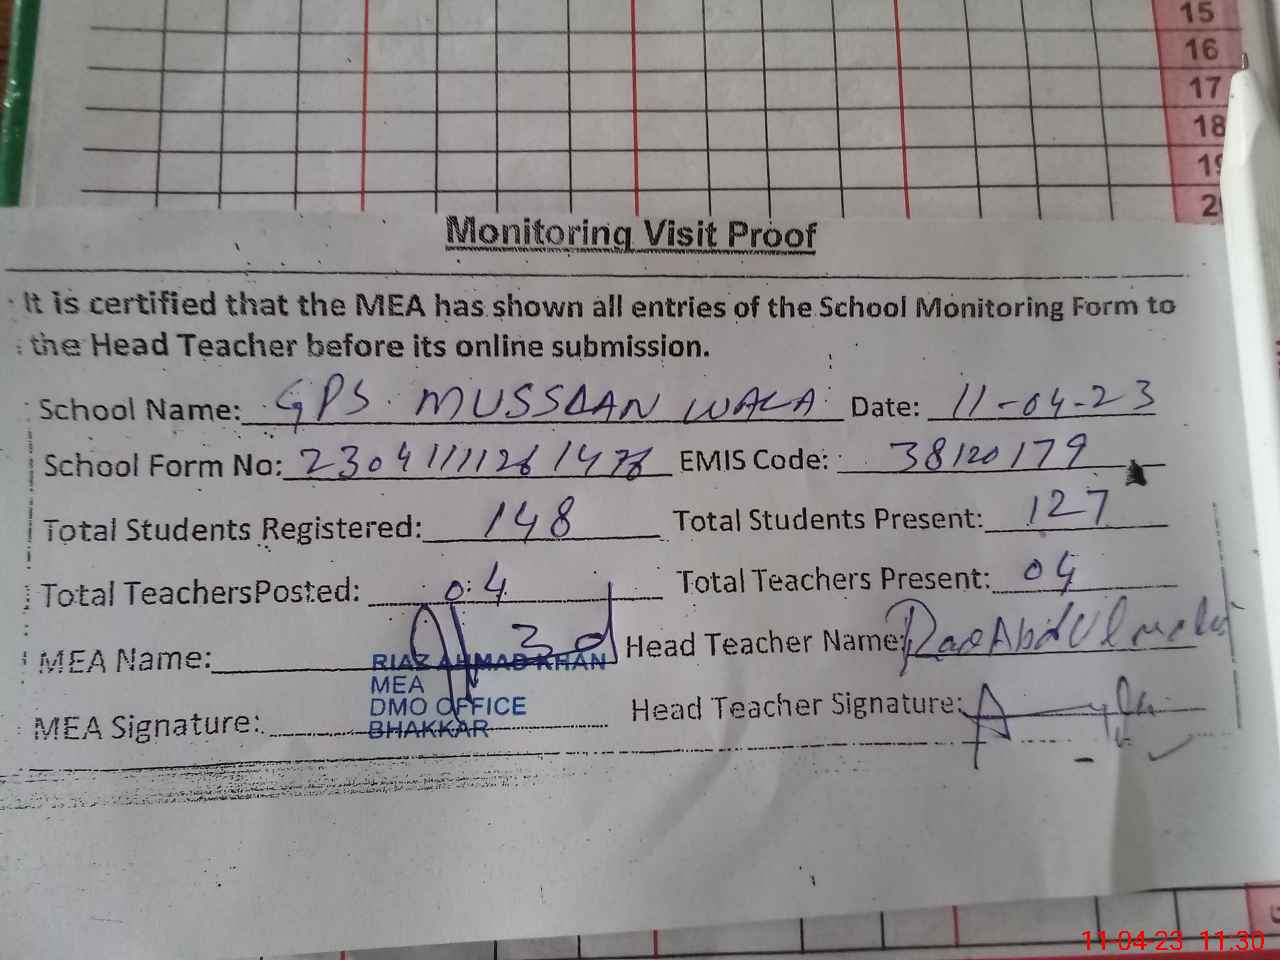 15
16
17
18
19
2
Monitoring Visit Proof
It is certified that the MEA has shown all entries of the School Monitoring Form to
the Head Teacher before its online submission.
School Name: GPS MUSSDAN WALA Date: 11-04-23
School Form No: EMIS Code: 38120179
Total Students Registered: 148 Total Students Present: 127
Total TeachersPosted: 04 Total Teachers Present: 04
MEA Name: RIAZ AHMAD KHAN Head Teacher Name: Rao Abdul
MEA
DMO OFFICE
MEA Signature: BHAKKAR Head Teacher Signature:
11-04-23 11:30